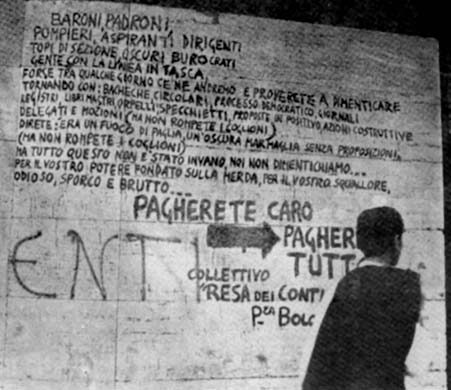 BARONI, PADRONI,
POMPIERI, ASPIRANTI DIRIGENTI
TOPI DI SEZIONE, OSCURI BUROCRATI
GENTE CON LA LINEA IN TASCA,
FORSE TRA QUALCHE GIORNO CE NE ANDREMO E PROVERETE A DIMENTICARE
TORNANDO CON: BACHECHE CIRCOLARI, PROCESSO DEMOCRATICO, GIORNALI
LEGISTRI, LIBRI MASTRI ORPELLI SPECCHIETTI, PROPOSTE IN POSITIVO AZIONI COSTRUTTIVE
DELEGATI E MOZIONI (MA NON ROMPETE I COGLIONI)
DIRETE: ERA UN FUOCO DI PAGLIA, UN'OSCURA MARMAGLIA SENZA PROPOSIZIONI,
(MA NON ROMPETE I COGLIONI)
MA TUTTO QUESTO NON E' STATO INVANO, NOI NON DIMENTICHIAMO...
PER IL VOSTRO POTERE FONDATO SULLA MERDA, PER IL VOSTRO SQUALLORE,
ODIOSO, SPORCO E BRUTTO...
PAGHERETE CARO
PAGHER
TUTT
ENTI
COLLETTIVO
"RESA DEI CONTI"
P.za BOLO